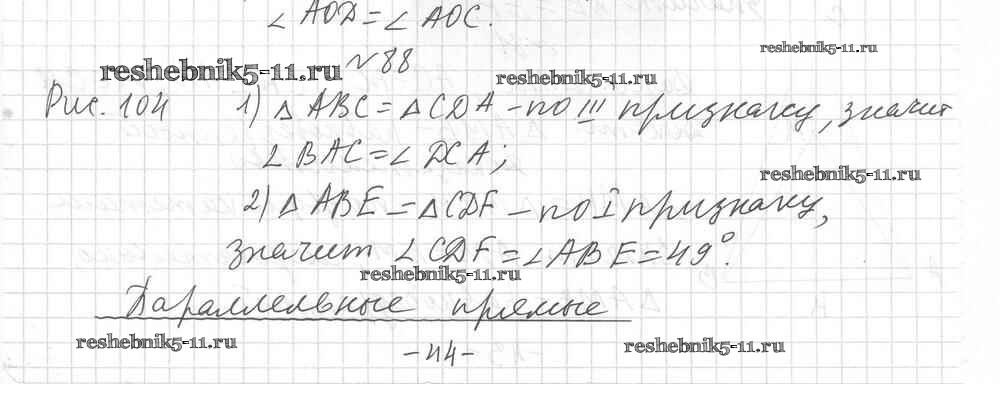 ∠ AOD = ∠ AOC.
№ 88
reshebnik5-11.ru
reshebnik5-11.ru
reshebnik5-11.ru
Рис. 104 1) △ ABC = △ CDA – по III признаку, значит
∠ BAC = ∠ DCA;
reshebnik5-11.ru
2) △ ABE = △ CDF – по I признаку,
значит ∠ CDF = ∠ ABE = 49°.
reshebnik5-11.ru
Параллельные прямые
reshebnik5-11.ru
-44-
reshebnik5-11.ru